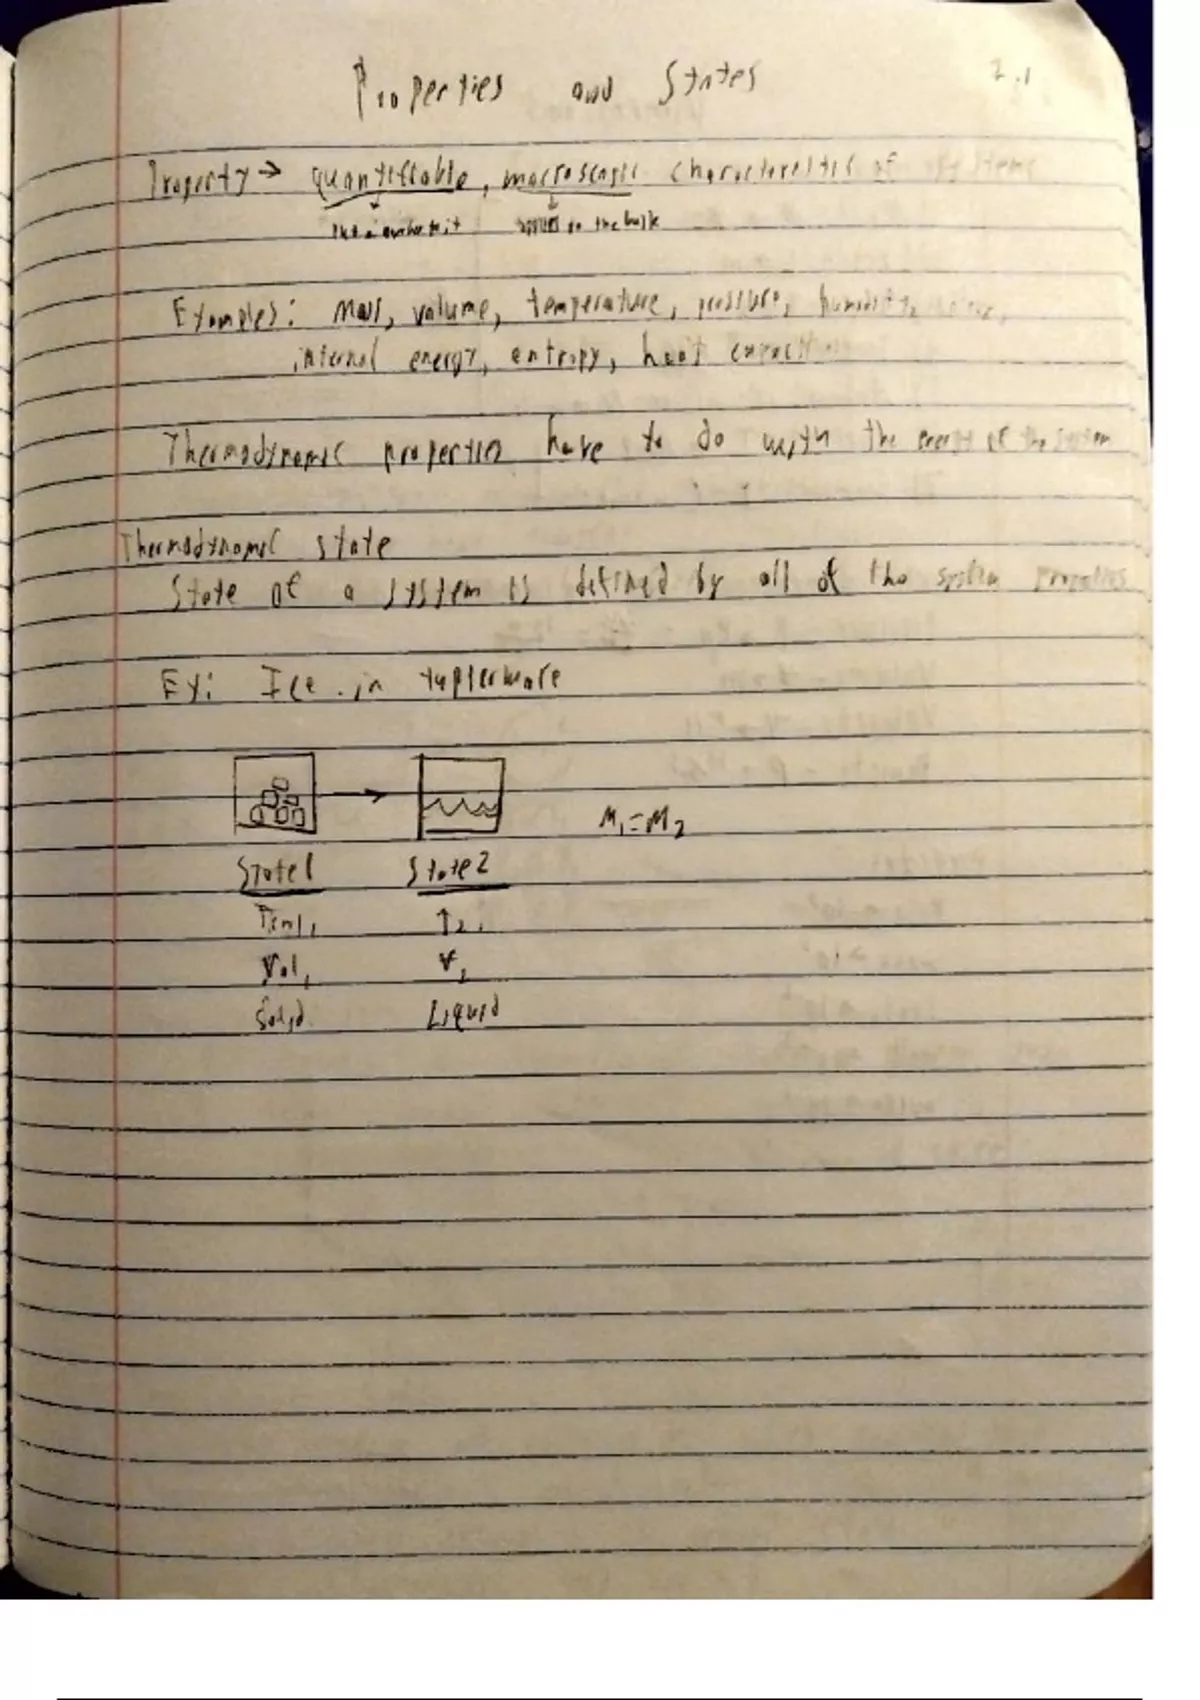 Properties and States
2.1
Property → quantifiable, macroscopic characteristics of systems
put a number to it applies to the bulk
Examples: Mass, volume, temperature, pressure, humidity,
internal energy, entropy, heat capacity
Thermodynamic properties have to do with the energy of the system
Thermodynamic state
State of a system is defined by all of the system properties
Ex: Ice in tupperware
M₁=M₂
State1 State2
Tem₁, T₂,
Vol₁ V₂
Solid Liquid